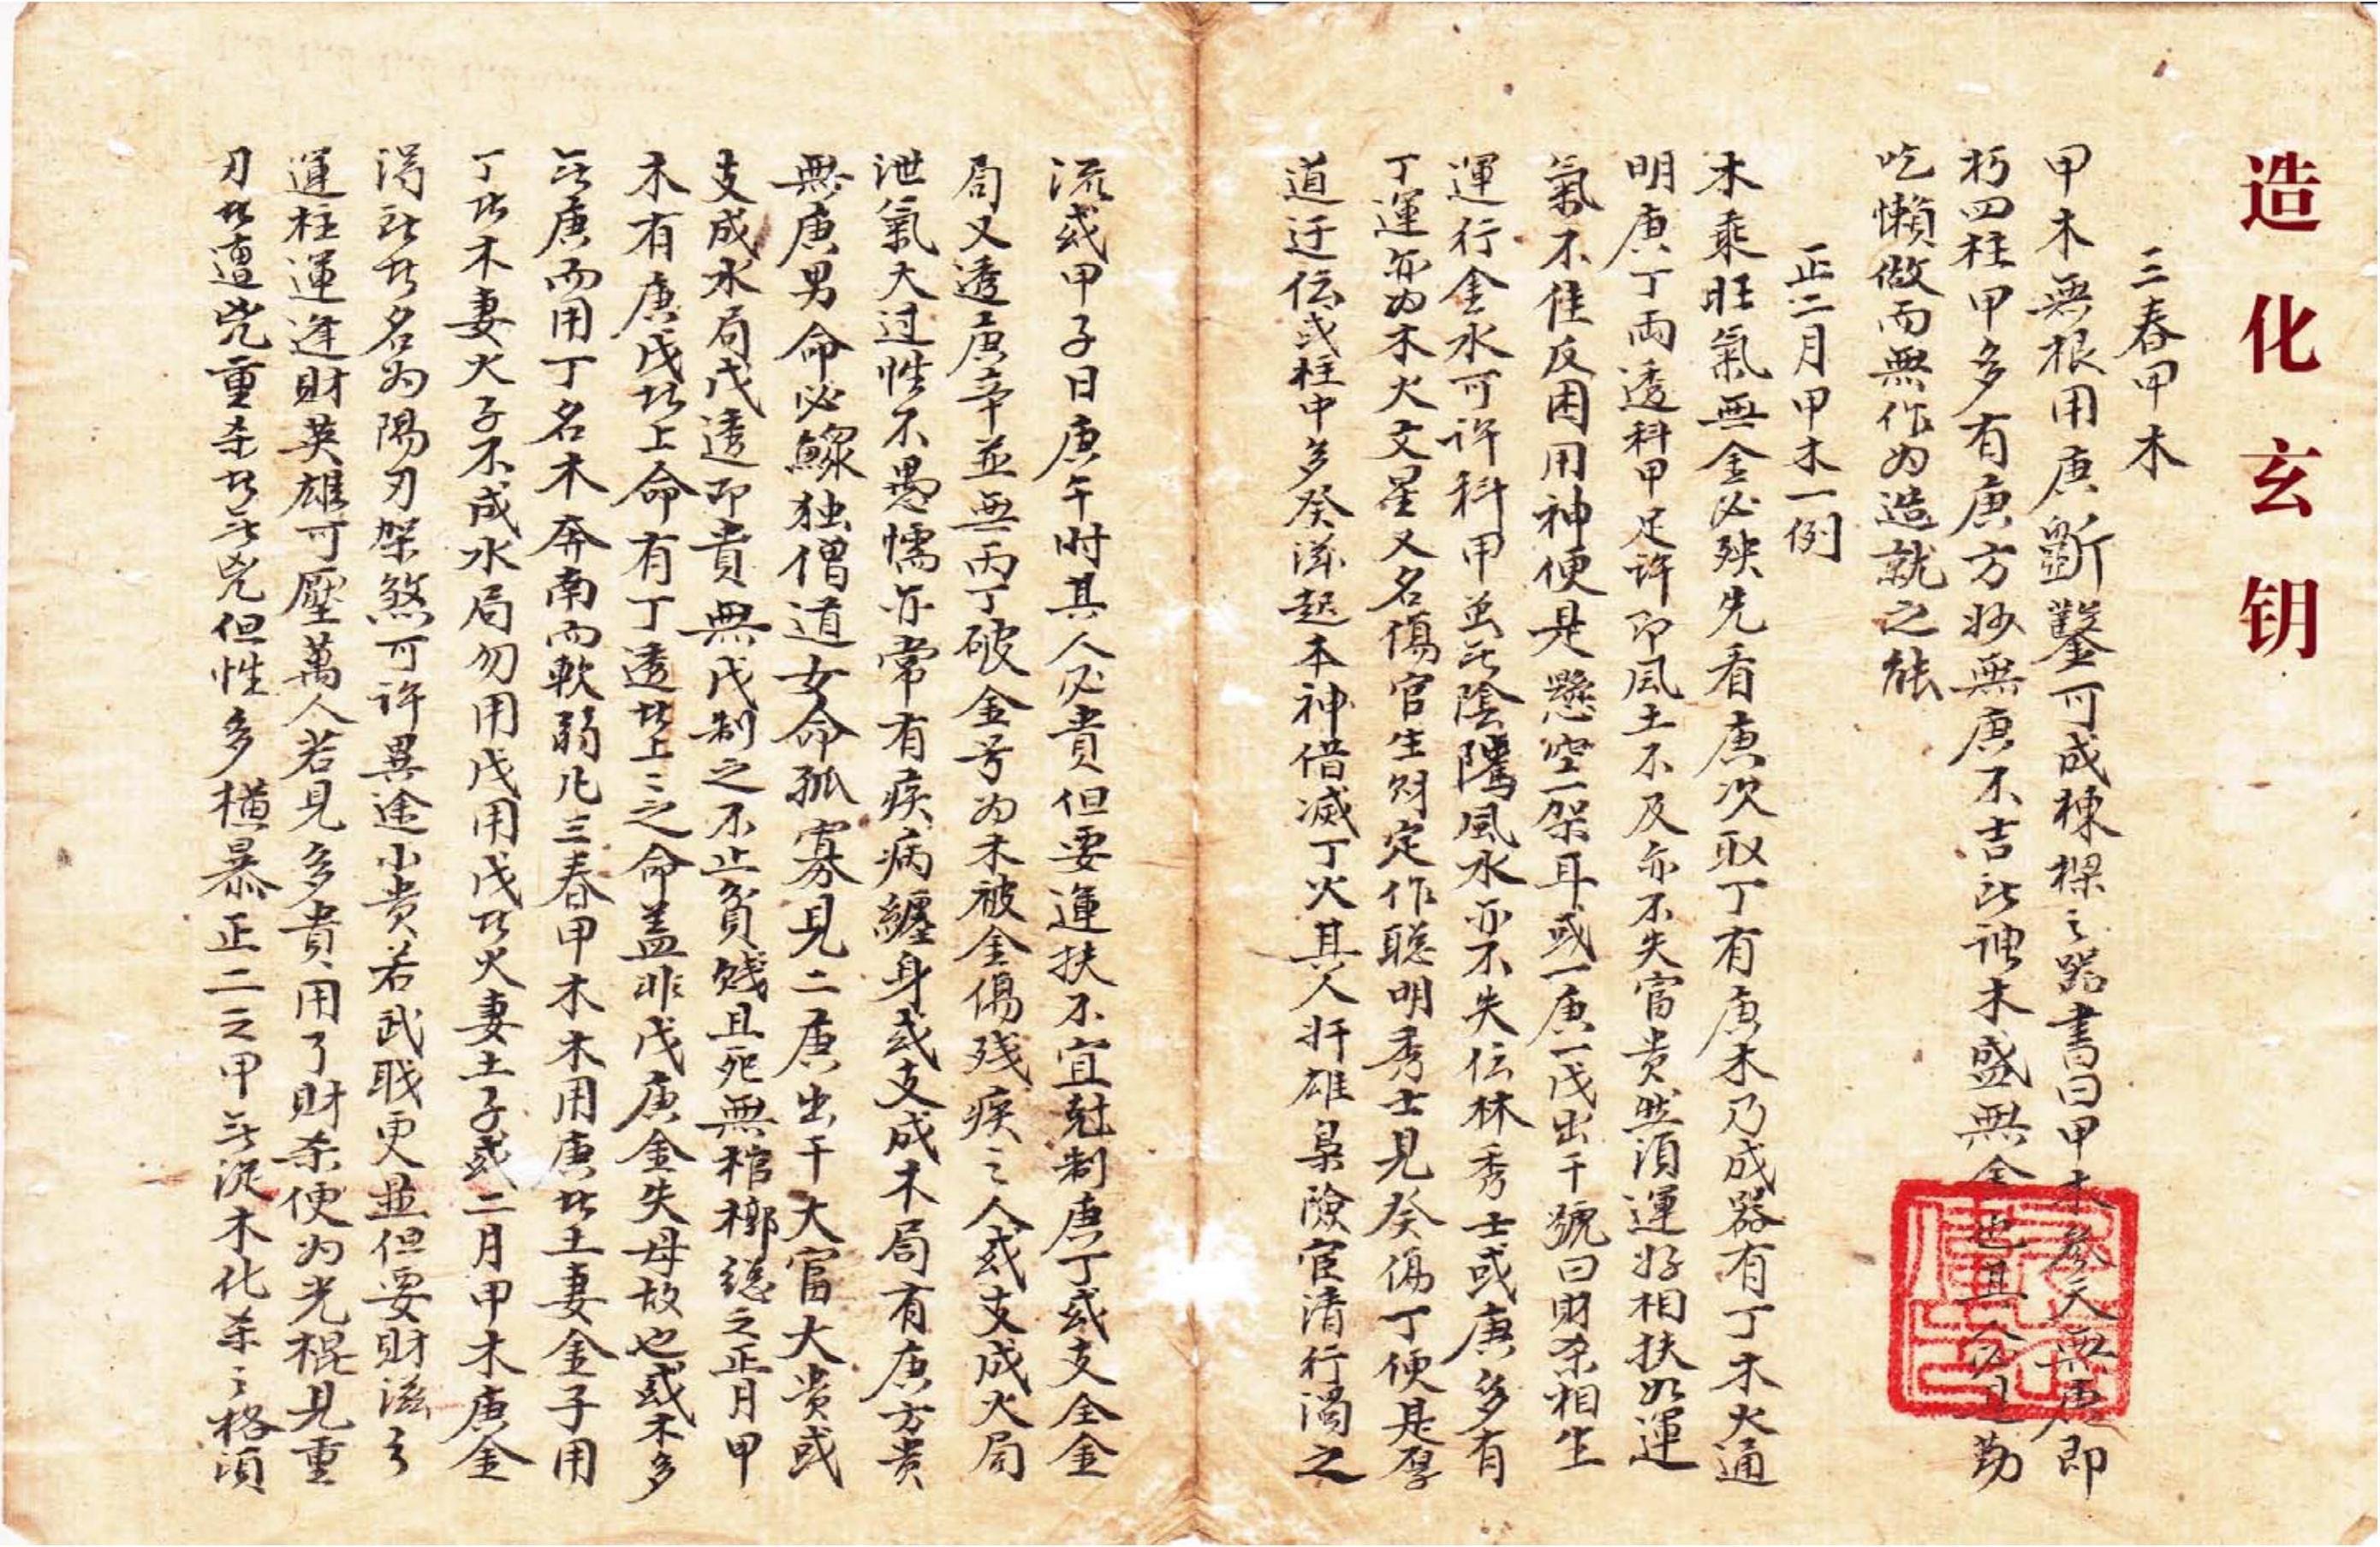 造化玄钥
三春甲木
甲木無根用庚斲鑿可成棟樑之器書曰甲木參天無庚即
朽四柱甲多有庚方妙無庚不吉此謂木盛無金也其人必是勤
吃懶做而無作为造就之能
正二月甲木一例
木乘旺氣無金必殃先看庚次取丁有庚木乃成器有丁木火通
明庚丁兩透科甲足許即風土不及亦不失富贵然須運好相扶如運
氣不佳反困用神便是懸空一架耳或一庚一戊出干號曰財杀相生
運行金水可許科甲並无陰隲風水亦不失伝林秀士或庚多有
丁運亦为木火文星又名傷官生財定作聪明秀士見癸傷丁便是厚
道迂伝或柱中多癸滋起本神借滅丁火其人奸雄枭險官清行濁之
流或甲子日庚午时其人必貴但要運扶不宜尅制庚丁或支全金
局又透庚辛並無丙丁破金号为木被金傷残疾之人或支成火局
泄氣大过性不愚懦亦常有疾病纏身或支成木局有庚方贵
無庚男命必鰥独僧道女命孤寡見二庚出干大富大贵或
支成水局戊透即貴無戊制之不止貧賤且死無棺槨総之正月甲
木有庚戊共上命有丁透共上之命盖非戊庚金失母故也或木多
无庚而用丁名木奔南而軟弱凡三春甲木木用庚共土妻金子用
丁共木妻火子不成水局勿用戊用戊共火妻土子或二月甲木庚金
得此共名为陽刃架煞可許異途小贵若武职更並但要財滋
運柱運逢財英雄可壓萬人若見多貴用了財杀便为光棍見重
刃共遭兇重杀共无兇但性多橫暴正二之甲无從木化杀之格須